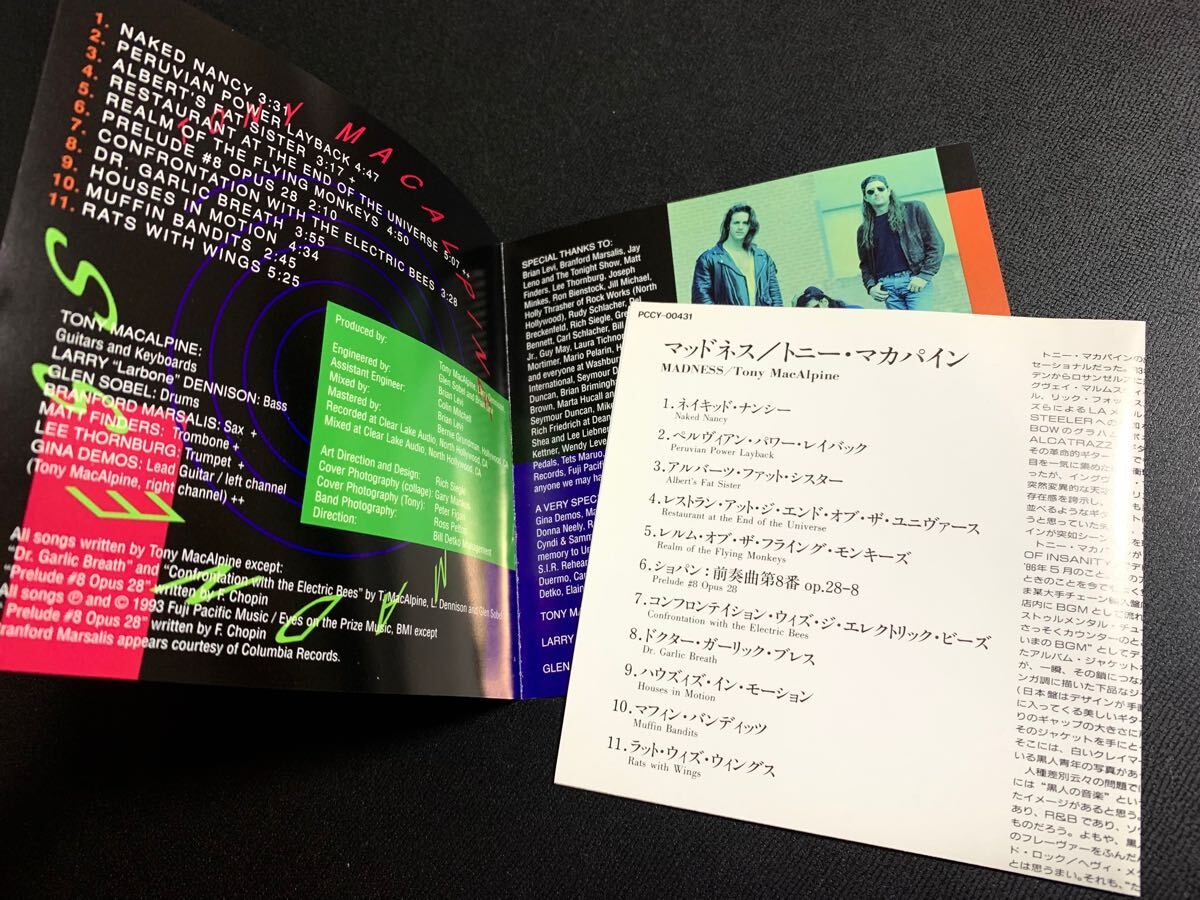 1. NAKED NANCY 3:31
2. PERUVIAN POWER LAYBACK 4:47
3. ALBERT'S FAT SISTER 3:17 +
4. RESTAURANT AT THE END OF THE UNIVERSE 5:07 ++
5. REALM OF THE FLYING MONKEYS 4:50
6. PRELUDE #8 OPUS 28 2:10
7. CONFRONTATION WITH THE ELECTRIC BEES 3:28
8. DR. GARLIC BREATH 3:55
9. HOUSES IN MOTION 4:34
10. MUFFIN BANDITS 2:45
11. RATS WITH WINGS 5:25
TONY MACALPINE
TONY MACALPINE:
Guitars and Keyboards
LARRY "Larbone" DENNISON: Bass
GLEN SOBEL: Drums
BRANFORD MARSALIS: Sax +
MATT FINDERS: Trombone +
LEE THORNBURG: Trumpet +
GINA DEMOS: Lead Guitar / left channel
(Tony MacAlpine, right channel) ++
All songs written by Tony MacAlpine except:
"Dr. Garlic Breath" and "Confrontation with the Electric Bees" by T. MacAlpine, L. Dennison and Glen Sobel
"Prelude #8 Opus 28" written by F. Chopin
All songs ℗ and © 1993 Fuji Pacific Music / Eyes on the Prize Music, BMI except
"Prelude #8 Opus 28" written by F. Chopin
Branford Marsalis appears courtesy of Columbia Records.
Produced by:
Tony MacAlpine,
Glen Sobel and
Engineered by: Brian Levi
Assistant Engineer: Colin Mitchell
Mixed by: Brian Levi
Mastered by: Bernie Grundman,
Recorded at Clear Lake Audio, North Hollywood, CA
Mixed at Clear Lake Audio, North Hollywood, CA
Art Direction and Design: Rich Siegle
Cover Photography (collage): Gary
Cover Photography (Tony): Peter
Band Photography: Ross
Direction: Bill Detko Management
SPECIAL THANKS TO:
Brian Levi, Branford Marsalis, Jay
Leno and The Tonight Show, Matt
Finders, Lee Thornburg, Joseph
Minkes, Ron Bienstock, Jill Michael,
Holly Thrasher of Rock Works (North
Hollywood), Rudy Schlacher, Del
Breckenfeld, Rich Siegle, Gre
Bennett, Carl Schlacher, Bill
Jr., Guy May, Laura Tichnor
Mortimer, Mario Pelarin, H
and everyone at Washburn
International, Seymour D
Duncan, Brian Brimingh
Brown, Marta Hucall an
Seymour Duncan, Mike
Rich Friedrich at Dean
Shea and Lee Liebne
Kettner, Wendy Leve
Pedals, Tets Maruo,
Records, Fuji Pacific
anyone we may ha
A VERY SPECI
Gina Demos, Ma
Donna Neely, R
Cyndi & Samm
memory to Un
S.I.R. Rehear
Duermo, Ca
Detko, Elain
TONY MA
LARRY
GLEN
PCCY-00431
マッドネス／トニー・マカパイン
MADNESS/Tony MacAlpine
1.ネイキッド・ナンシー
Naked Nancy
2.ペルヴィアン・パワー・レイバック
Peruvian Power Layback
3.アルバーツ・ファット・シスター
Albert's Fat Sister
4.レストラン・アット・ジ・エンド・オブ・ザ・ユニヴァース
Restaurant at the End of the Universe
5.レルム・オブ・ザ・フライング・モンキーズ
Realm of the Flying Monkeys
6.ショパン：前奏曲第8番 op.28-8
Prelude #8 Opus 28
7.コンフロンテイション・ウィズ・ジ・エレクトリック・ビーズ
Confrontation with the Electric Bees
8.ドクター・ガーリック・ブレス
Dr. Garlic Breath
9.ハウズィズ・イン・モーション
Houses in Motion
10.マフィン・バンディッツ
Muffin Bandits
11.ラット・ウィズ・ウィングス
Rats with Wings
トニー・マカパインの
セーショナルだった。'8
デンからロサンゼルスに
グヴェイ・マルムス
ル、リック・フォッ
ズらによるLAメ
STEELERへの
BOWのグラハム・ボ
ALCATRAZZ
その革命的ギター
目を一気に集めた
ったが、イングヴ
突然変異的な天
存在感を誇示し、
並べるようなギタ
うと思っていた
インが突如シーン
トニー・マカパ
OF INSANITY
'86年5月のこと
ときのことを今で
ま某大手チェーン
店内にBGMとして流れ
ストゥルメンタル・チュー
さっそくカウンターのと
いまのBGM"としてデ
たアルバム・ジャケット
が、一瞬、その鎖につな
ンガ調に描いた下品なジ
(日本盤はデザインが手
に入ってくる美しいギタ
りのギャップの大きさに
そのジャケットを手にと
そこには、白いクレイマー
いる黒人青年の写真があ
人種差別云々の問題で
には"黒人の音楽"とい
たイメージがあると思う。
あり、R&Bであり、ソ
ものだろう。よもや、黒
のフレーヴァーをふんだん
ド・ロック/ヘヴィ・メ
とは思うまい。それも、"た